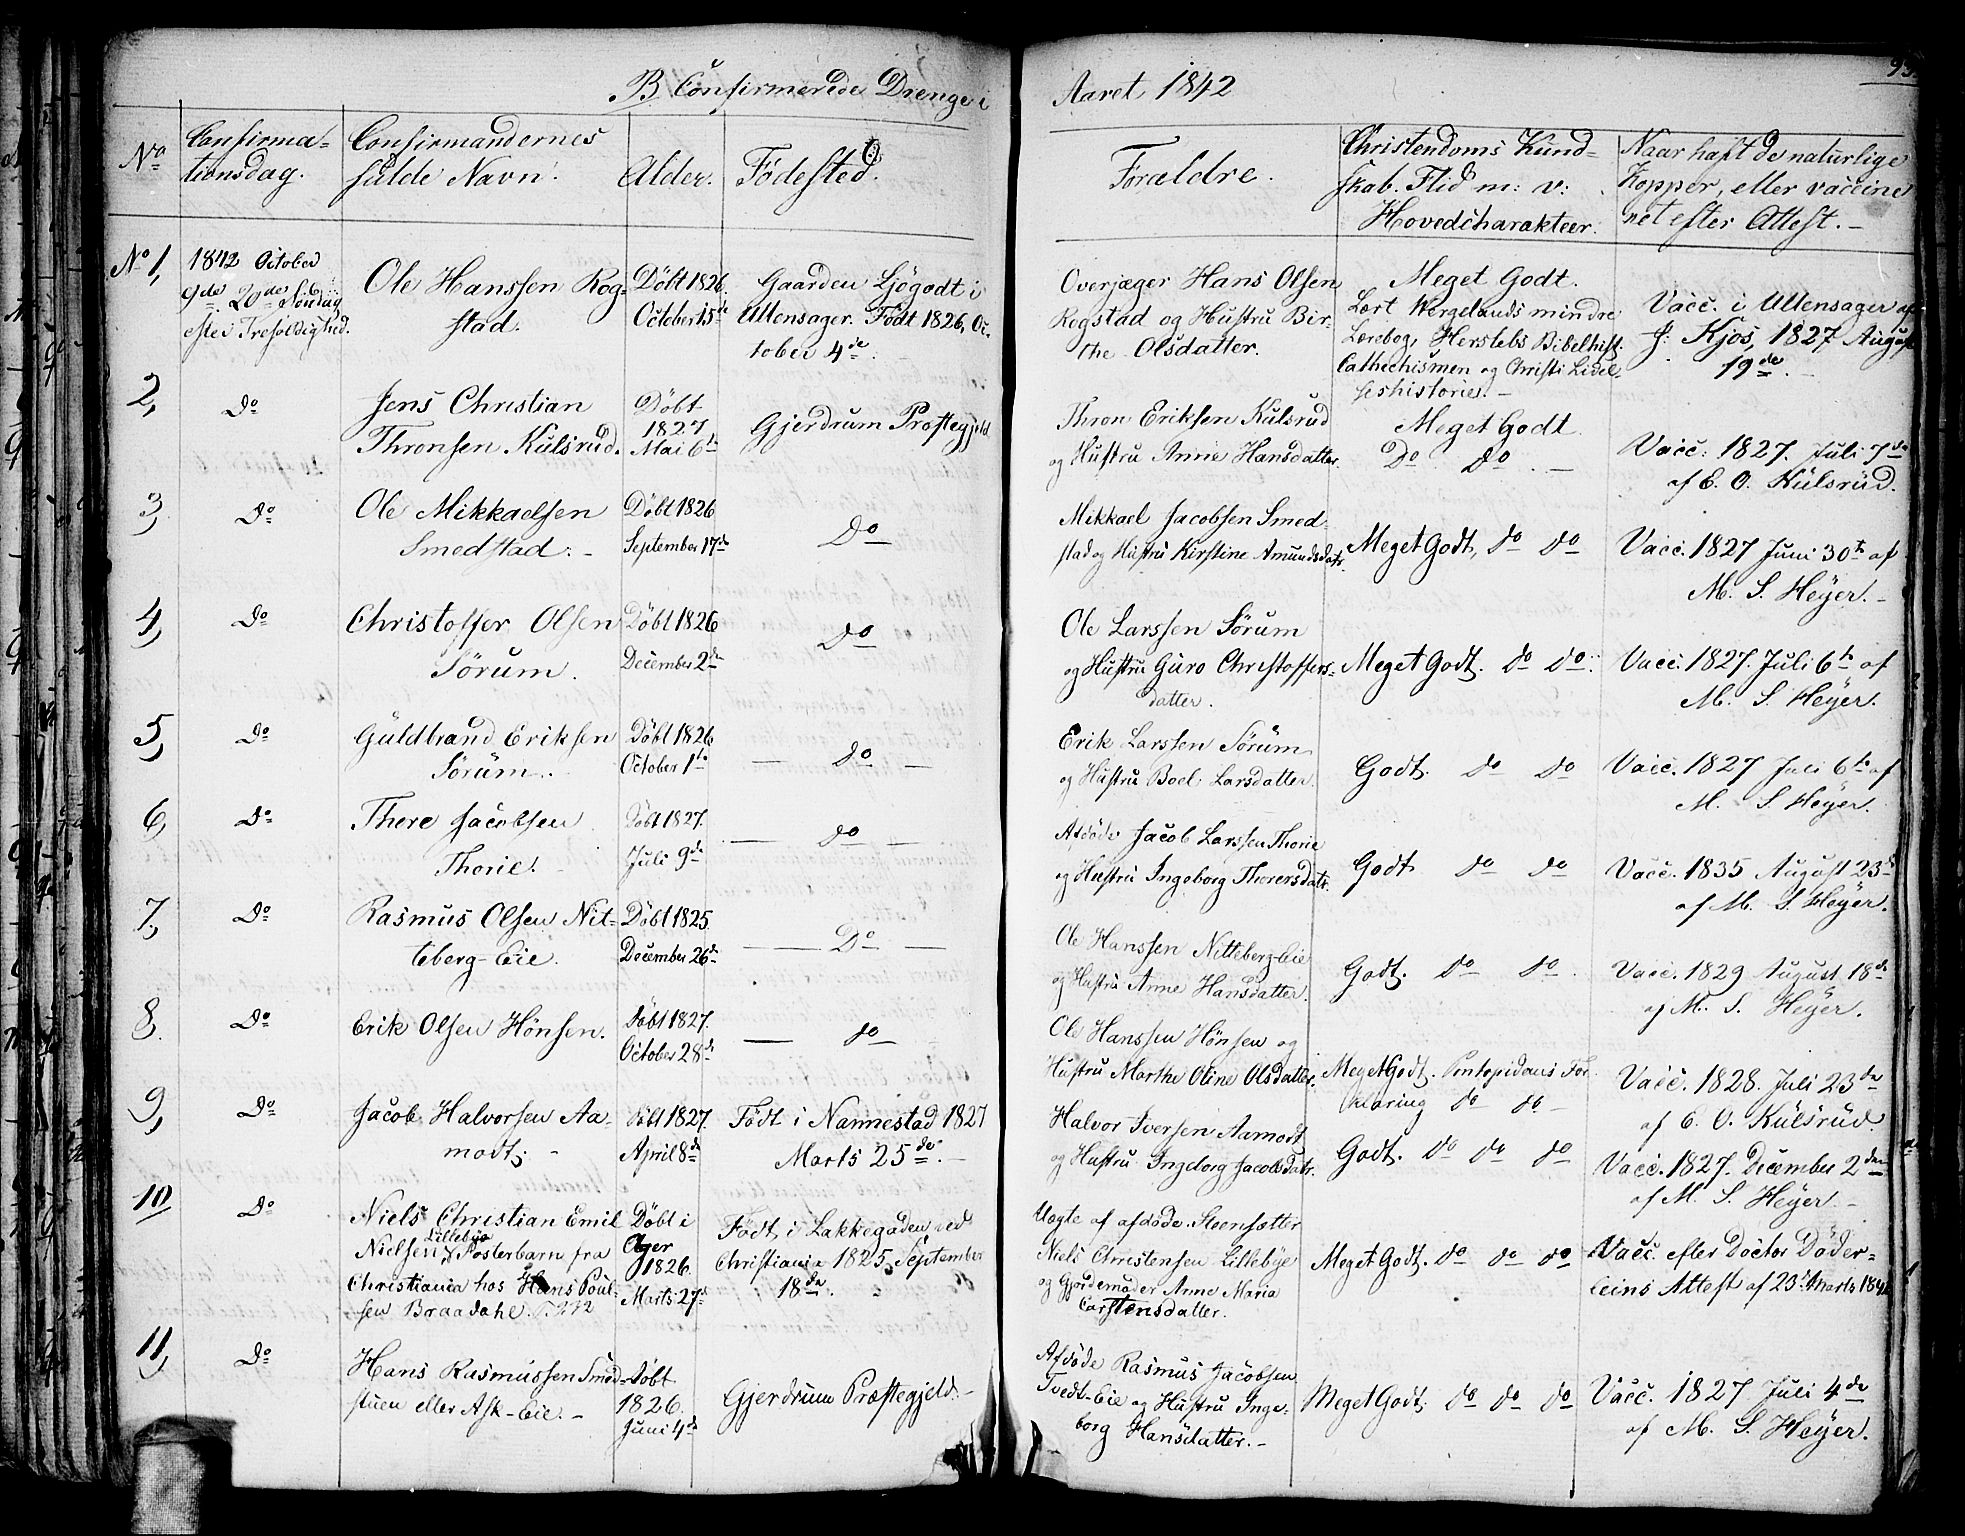 B Confirmerede Drenge i Aaret 1842
93
No
Confirma-
tionsdag.
Confirmandernes
fulde Navn.
Alder.
Fødested.
Forældre.
Christendoms Kund-
skab. Flid m: v:
Hovedcharakteer.
Naar haft de naturlige
Kopper, eller vaccine
ret efter Attest. -
No 1,
1842 October
9de 20de Søndag
efter Trefoldighed.
Ole Hanssen Rog-
stad.
Døbt 1826.
October 15de
Gaarden Ljøgodt i
Ullensager. Født 1826, Oc-
tober 4de.
Overjæger Hans Olsen
Rogstad og Hustru Bir-
the Olsdatter.
Meget Godt.
Lært Wergelands mindre
Lærebog, Herslebs Bibelhist.
Cathechismen og Christi Lidel-
seshistorie. -
Vacc. i Ullensager af
J: Kjos, 1827 August
19de. -
2,
Do
Jens Christian
Thronsen Kulsrud.
Døbt
1827
Mai 6te
Gjerdrum Præstegjeld
Thron Eriksen Kulsrud
og Hustru Anne Hansdatter.
Meget Godt.
Do do. -
Vacc: 1827. Juli 7de
af E. O. Kulsrud.
3,
Do
Ole Mikkaelsen
Smedstad. -
Døbt 1826
September 17de
Do
Mikkael Jacobsen Smed-
stad og Hustru Kirstine Amundsdatr.
Meget Godt, do do
Vacc. 1827 Juni 30te af
M. S. Heyer. -
4,
Do
Christoffer Olsen
Sørum.
Døbt 1826
December 2de
Do
Ole Larssen Sørum
og Hustru Guro Christoffers-
datter.
Meget Godt. do do.
Vacc. 1827. Juli 6te af
M. S. Heyer.
5,
Do
Guldbrand Eriksen
Sørum.
Døbt 1826
October 1te
- do -
Erik Larssen Sørum
og Hustru Boel Larsdatter.
Godt. do do
Vacc. 1827 Juli 6te af
M. S. Heyer.
6,
Do
Thore Jacobsen
Thorie. -
Døbt 1827.
Juli 9de
- do -
Afdøde Jacob Larssen Thorie
og Hustru Ingeborg Thorersdatr.
Godt. do do
Vacc. 1835 August 23de
af M. S. Heyer.
7,
Do
Rasmus Olsen Nit-
teberg-Eie.
Døbt 1825.
December 26de
- Do -
Ole Hanssen Nitteberg-Eie
og Hustru Anne Hansdatter.
Godt. do do.
Vacc. 1829 August 18de
af M. S. Heyer.
8.
Do
Erik Olsen Hønsen.
Døbt 1827.
October 28de
- do
Ole Hanssen Hønsen og
Hustru Marthe Oline Olsdatter.
Meget Godt. Pontopidans For-
klaring do do -
Vacc. 1828. Juli 23de
af E. O. Kulsrud.
9,
Do
Jacob Halvorsen Aa-
modt. -
Døbt 1827.
April 8de
Født i Nannestad 1827
Marts 25de. -
Halvor Iversen Aamodt
og Hustru Ingeborg Jacobsdatr.
Godt. do do do
Vacc. 1827. December 2den
af M. S. Heyer. -
10
Do
Niels Christian Emil
Lillebye
Nielsen, Fosterbarn fra
Christiania hos Hans Poul-
sen Braadahl.
Døbt i
Ager
1826.
Marts 27de
Født i Lakkegaden ved
Christiania 1825 September
18de.
Uægte af afdøde Steensætter
Niels Christensen Lillebye
og Gjordemoder Anne Maria
Carstensdatter.
Meget Godt. do do do
Vacc. efter Doctor Døder-
leins Attest af 23de Marts 184
11,
Do
Hans Rasmussen Smed-
stuen eller Ask-Eie. -
Døbt
1826.
Juni 4de
Gjerdrum Præstegjeld. -
Afdøde Rasmus Jacobsen
Tvedt-Eie og Hustru Inge-
borg Hansdatter. -
Meget Godt, do do do
Vacc. 1827 Juli 4de
af M. S. Heyer.